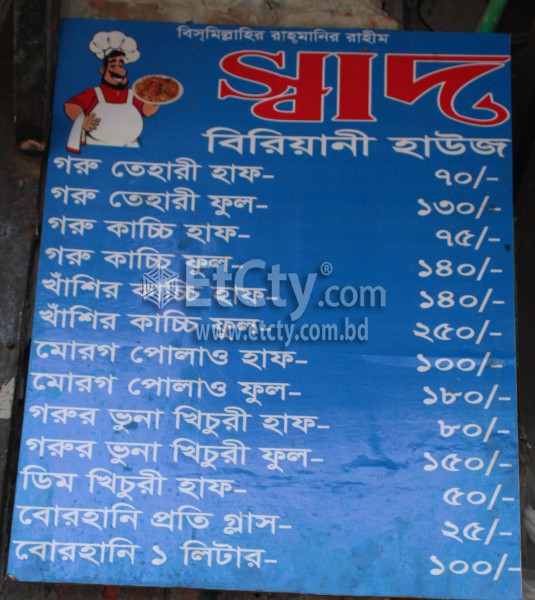 বিস্‌মিল্লাহির রাহ্‌মানির রাহীম
স্বাদ
বিরিয়ানী হাউজ
গরু তেহারী হাফ- ৭০/-
গরু তেহারী ফুল- ১৩০/-
গরু কাচ্চি হাফ- ৭৫/-
গরু কাচ্চি ফুল- ১৪০/-
খাঁশির কাচ্চি হাফ- ১৪০/-
খাঁশির কাচ্চি ফুল- ২৫০/-
মোরগ পোলাও হাফ- ১০০/-
মোরগ পোলাও ফুল- ১৮০/-
গরুর ভুনা খিচুরী হাফ- ৮০/-
গরুর ভুনা খিচুরী ফুল- ১৫০/-
ডিম খিচুরী হাফ- ৫০/-
বোরহানি প্রতি গ্লাস- ২৫/-
বোরহানি ১ লিটার- ১০০/-
EtCty®.com
www.etcty.com.bd